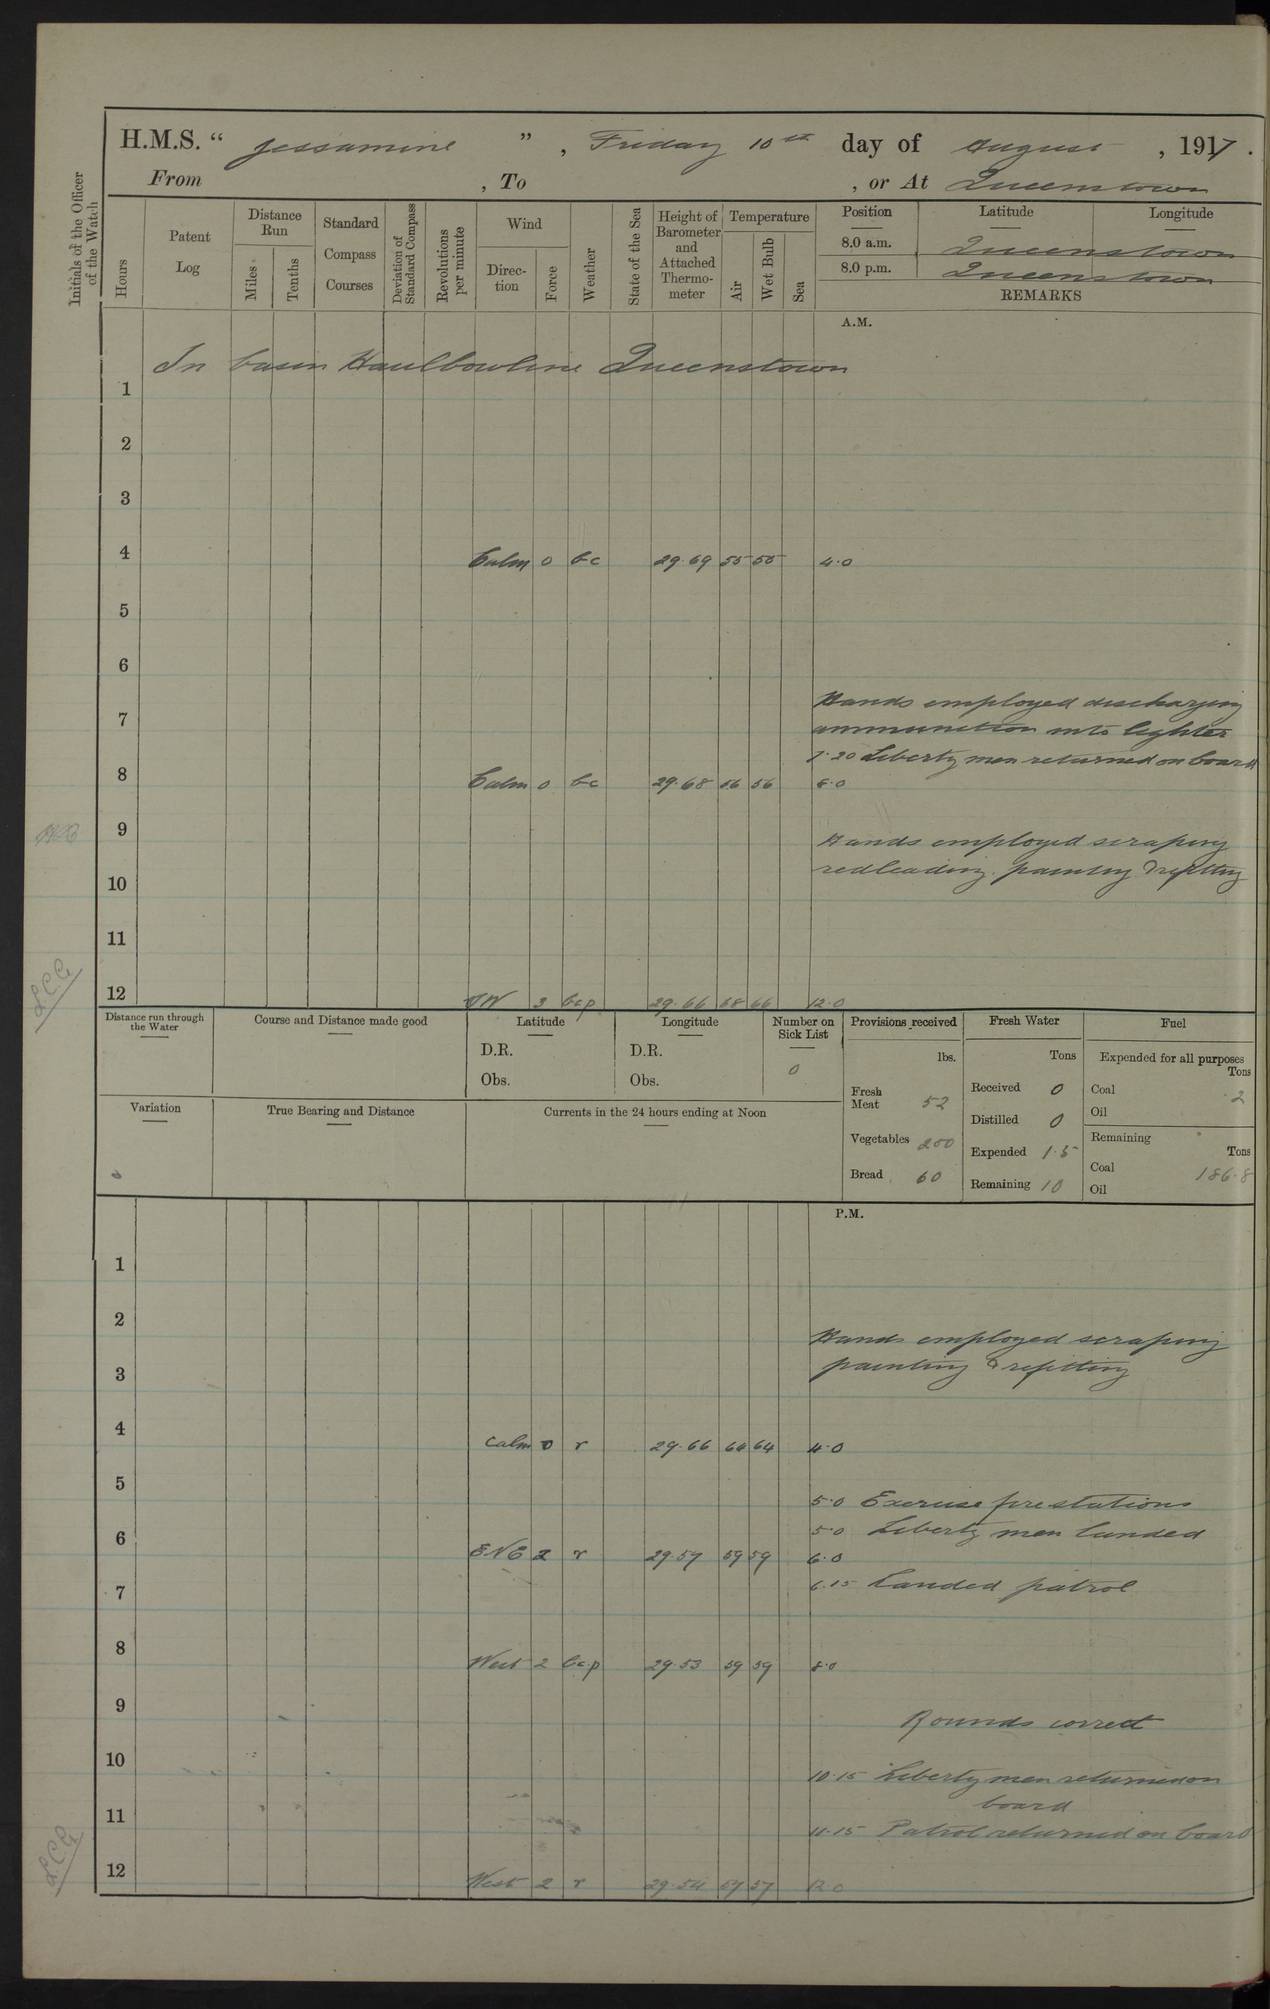 H.M.S. “ Jessamine ” , Friday 10th day of August , 1917 .
From , To , or At Queenstown
Initials of the Officer of the Watch
Hours
Patent Log
Distance Run
Miles
Tenths
Standard Compass Courses
Deviation of Standard Compass
Revolutions per minute
Wind
Direction
Force
Weather
State of the Sea
Height of Barometer and Attached Thermometer
Temperature
Air
Wet Bulb
Sea
Position Latitude Longitude
8.0 a.m. Queenstown
8.0 p.m. Queenstown
REMARKS
A.M.
In basin Haulbowline Queenstown
1
2
3
4 Calm 0 bc 29.69 55 55 4.0
5
6
Hands employed discharging
7 ammunition into lighter
7.20 Liberty men returned on board
8 Calm 0 bc 29.68 56 56 8.0
9 Hands employed scraping
redleading. painting & refitting
10
11
LCG
12 SW 3 bcp 29.66 68 66 12.0
Distance run through the Water
Course and Distance made good
Latitude
D.R.
Obs.
Longitude
D.R.
Obs.
Number on Sick List
0
Provisions received
lbs.
Fresh Meat 52
Vegetables 200
Bread 60
Fresh Water
Tons
Received 0
Distilled 0
Expended 1.5
Remaining 10
Fuel
Expended for all purposes
Tons
Coal 2
Oil
Remaining
Tons
Coal 186.8
Oil
Variation
True Bearing and Distance
Currents in the 24 hours ending at Noon
P.M.
1
2
Hands employed scraping
3 painting & refitting
4 Calm 0 r 29.66 64 64 4.0
5
5.0 Exercise fire stations
5.0 Liberty men landed
6 ENE 2 r 29.57 59 59 6.0
6.15 Landed patrol
7
8 West 2 bc.p 29.53 59 59 8.0
9 Rounds correct
10 10.15 Liberty men returned on
board
11 11.15 Patrol returned on board
LCG
12 West 2 r 29.54 57 57 12.0